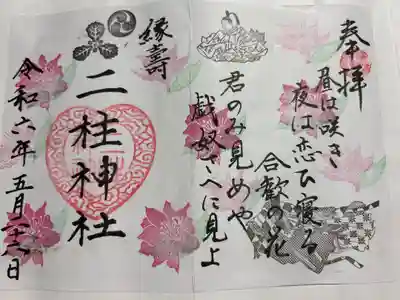 奉拝
昼は咲き
夜は恋ひ寝る
合歓の花
君のみ見めや
戯奴さへに見よ
縁壽
二柱神社
令和六年五月二十八日